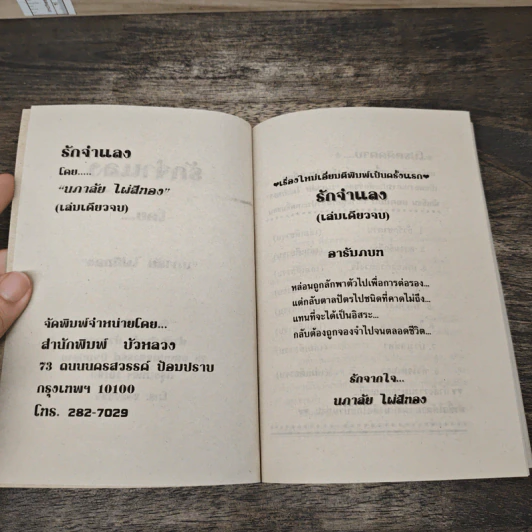 รักจำแลง
โดย.....
"นภาลัย ไผ่สีทอง"
(เล่มเดียวจบ)
จัดพิมพ์จำหน่ายโดย...
สำนักพิมพ์ บัวหลวง
73 ถนนนครสวรรค์ ป้อมปราบ
กรุงเทพฯ 10100
โทร. 282-7029
♥เรื่องใหม่เอี่ยมตีพิมพ์เป็นครั้งแรก♥
รักจำแลง
(เล่มเดียวจบ)
อารัมภบท
หล่อนถูกลักพาตัวไปเพื่อการต่อรอง...
แต่กลับตาลปัตรไปชนิดที่คาดไม่ถึง...
แทนที่จะได้เป็นอิสระ...
กลับต้องถูกจองจำไปจนตลอดชีวิต...
รักจากใจ...
นภาลัย ไผ่สีทอง